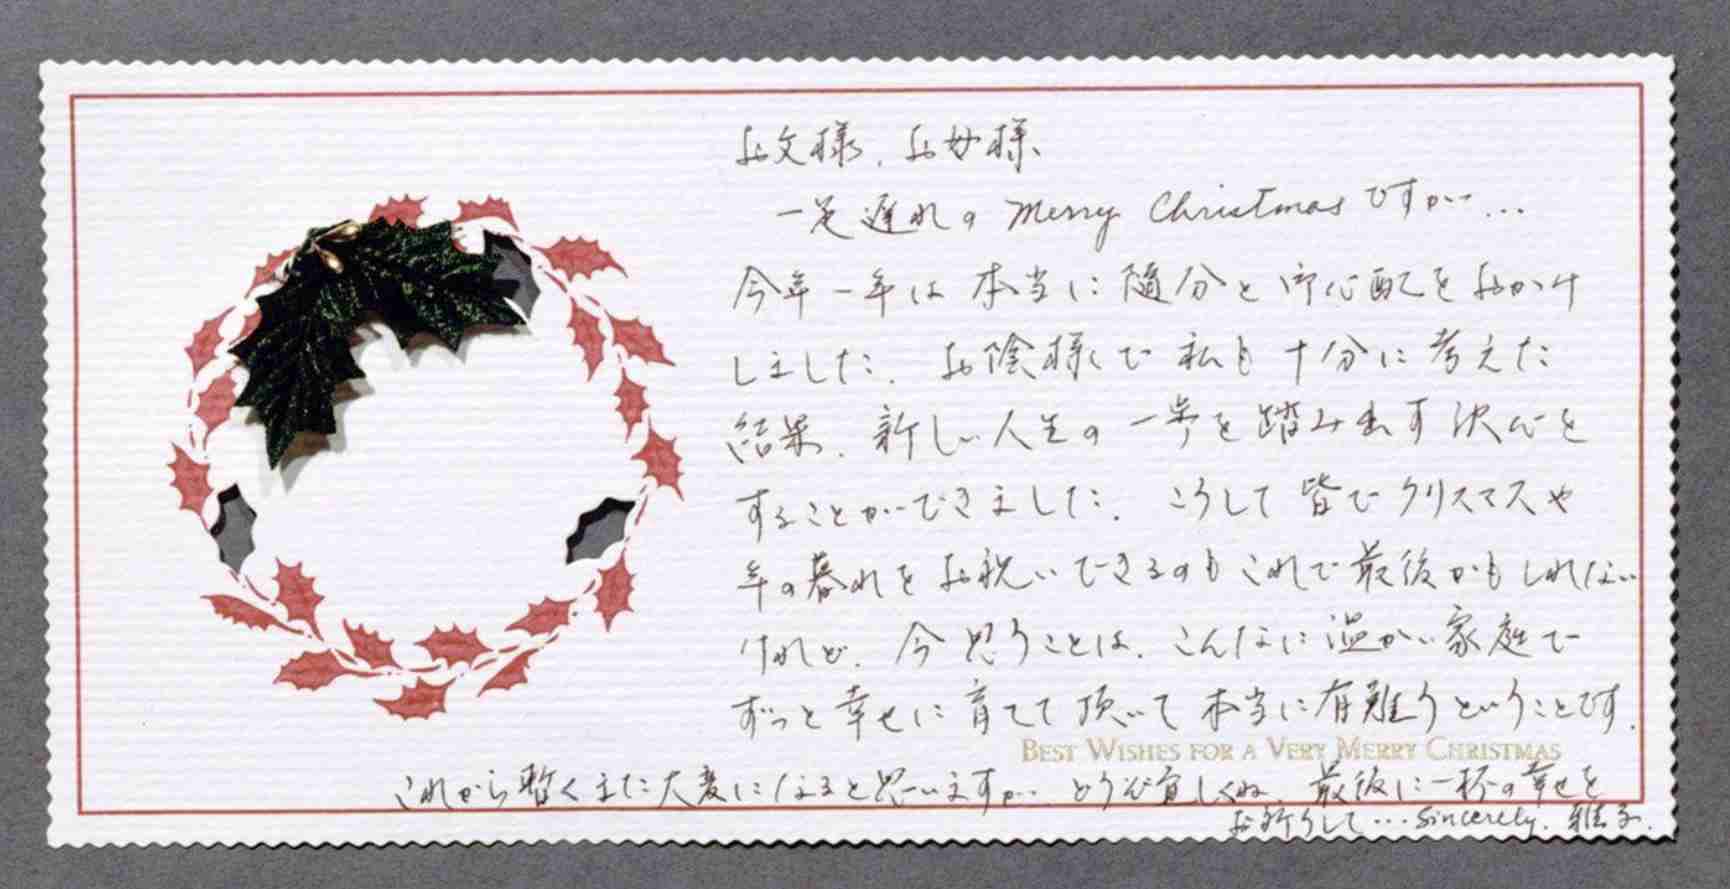 お父様、お母様
一足遅れの Merry Christmas ですが…
今年一年は本当に随分と御心配をおかけ
しました。お陰様で私も十分に考えた
結果、新しい人生の一歩を踏み出す決心を
することができました。こうして皆でクリスマスや
年の暮れをお祝いできるのもこれで最後かもしれない
けれど、今思うことは、こんなに温かい家庭で
ずっと幸せに育てて頂いて本当に有難うということです。
BEST WISHES FOR A VERY MERRY CHRISTMAS
これから暫くまた大変になると思いますが… どうぞ宜しくね。最後に一杯の幸せを
お祈りして… Sincerely, 雅子.